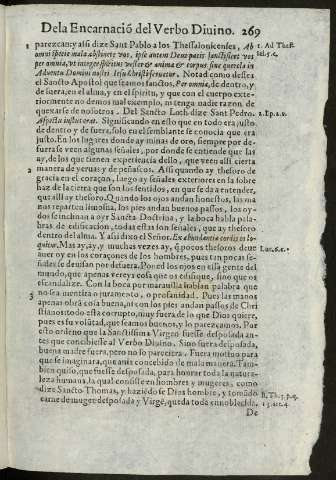 De la Encarnació del Verbo Diuino. 269
1 parezcan; y assi dize Sant Pablo a los Thessalonicenses, Ab 1. Ad Thes.
omni specie mala abstinete vos, ipse autem Deus pacis sanctificet vos sal. 5. c.
per omnia, vt integer spiritus vester & anima & corpus sine querela in
Aduentu Domini nostri Iesu Christi seruetur. Notad como dessea
el Sancto Apostol que seamos sanctos, Per omnia, de dentro, y
de fuera, en el alma, y en el spiritu, y que con el cuerpo exte-
riormente no demos mal exemplo, ni tenga nadie razon de
quexarse de nosotros. Del Sancto Loth dize Sant Pedro. 2. Ep. c. 2.
Aspectu iustus erat. Significando en esto que en todo era justo
de dentro y de fuera, solo en el semblante se conocia que era
justo. En los lugres donde ay minas de oro, siempre por de-
fuera se veen algunas señales, por donde se entiende que las
ay, de los que tienen experiencia dello, que veen alli cierta
manera de yeruas y de peñascos. Assi quando ay thesoro de
gracia en el coraçon, luego ay señales exteriores en la sobre
haz de la tierra que son los sentidos, en que se da a entender,
que alli ay thesoro. Quando los ojos andan honestos, las ma
nos reparten limosina, los pies andan buenos passos, los oy-
dos se inclinan a oyr Sancta Doctrina, y la boca habla pala-
bras de edificacion, todas estas son señales, que ay thesoro
dentro del alma. Y assi dixo el Señor. Ex abundantia cordis os lo-
quitur. Mas ay, ay, y muchas vezes ay, q̃ pocos thesoros deue Luc. 6. c.
auer oy en los coraçones de los hombres, pues tan pocas se-
ñales se deuisan por defuera. Poned los ojos en essa gente del
mundo, que apenas vereys cosa que os edifique, sino que os
escandalize. Con la boca por marauilla hablan palabra que
no sea mentira o juramento, o profanidad. Pues las manos
3 apenas obrã cosa buena, ni con los pies andan passos de Chri
stianos: todo esta corrupto, muy fuera de lo que Dios quiere,
pues es su volũtad, que seamos buenos, y lo parezcamos. Por
esto ordeno que la sanctissima Virgen fuesse desposada an-
tes que concibiesse al Verbo Diuino. Sino fuera desposada,
buena madre fuera, pero no lo pareciera. Fuera motiuo para
que se imaginara, que auia concebido de mala manera. Tam
bien quiso, que fuesse desposada, para honrar toda la natura-
leza humana, la qual consiste en hombres y mugeres, como
dize Sancto Thomas, y haziẽdose Dios hombre, y tomãdo S. Th. 3. p. q.
carne de muger desposada y Virgẽ, queda toda ennoblecida. 1 3. art. 4.
De